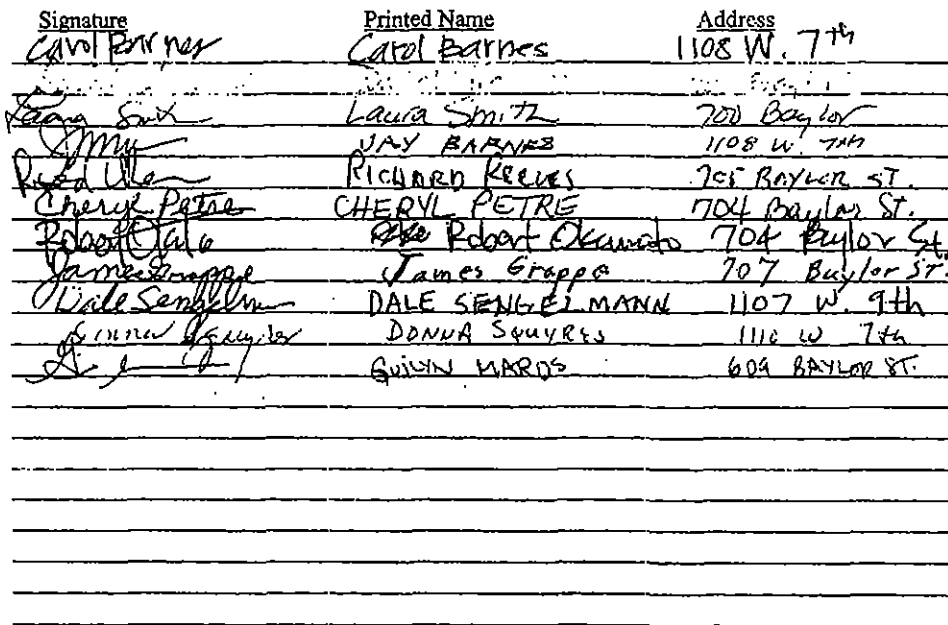 Signature Printed Name Address
Carol Barnes Carol Barnes 1108 W. 7th
Laura Smith Laura Smith 700 Baylor
JAY BARNES 1108 W. 7th
RICHARD REEVES 705 BAYLOR ST.
Cheryl Petre CHERYL PETRE 704 Baylor St.
Robert Robert Okumoto 704 Baylor St
James Grappe James Grappe 707 Baylor ST.
Dale Sengelm DALE SENGELMANN 1107 W. 9th
Donna Squyres DONNA SQUYRES 1110 W 7th
609 BAYLOR ST.